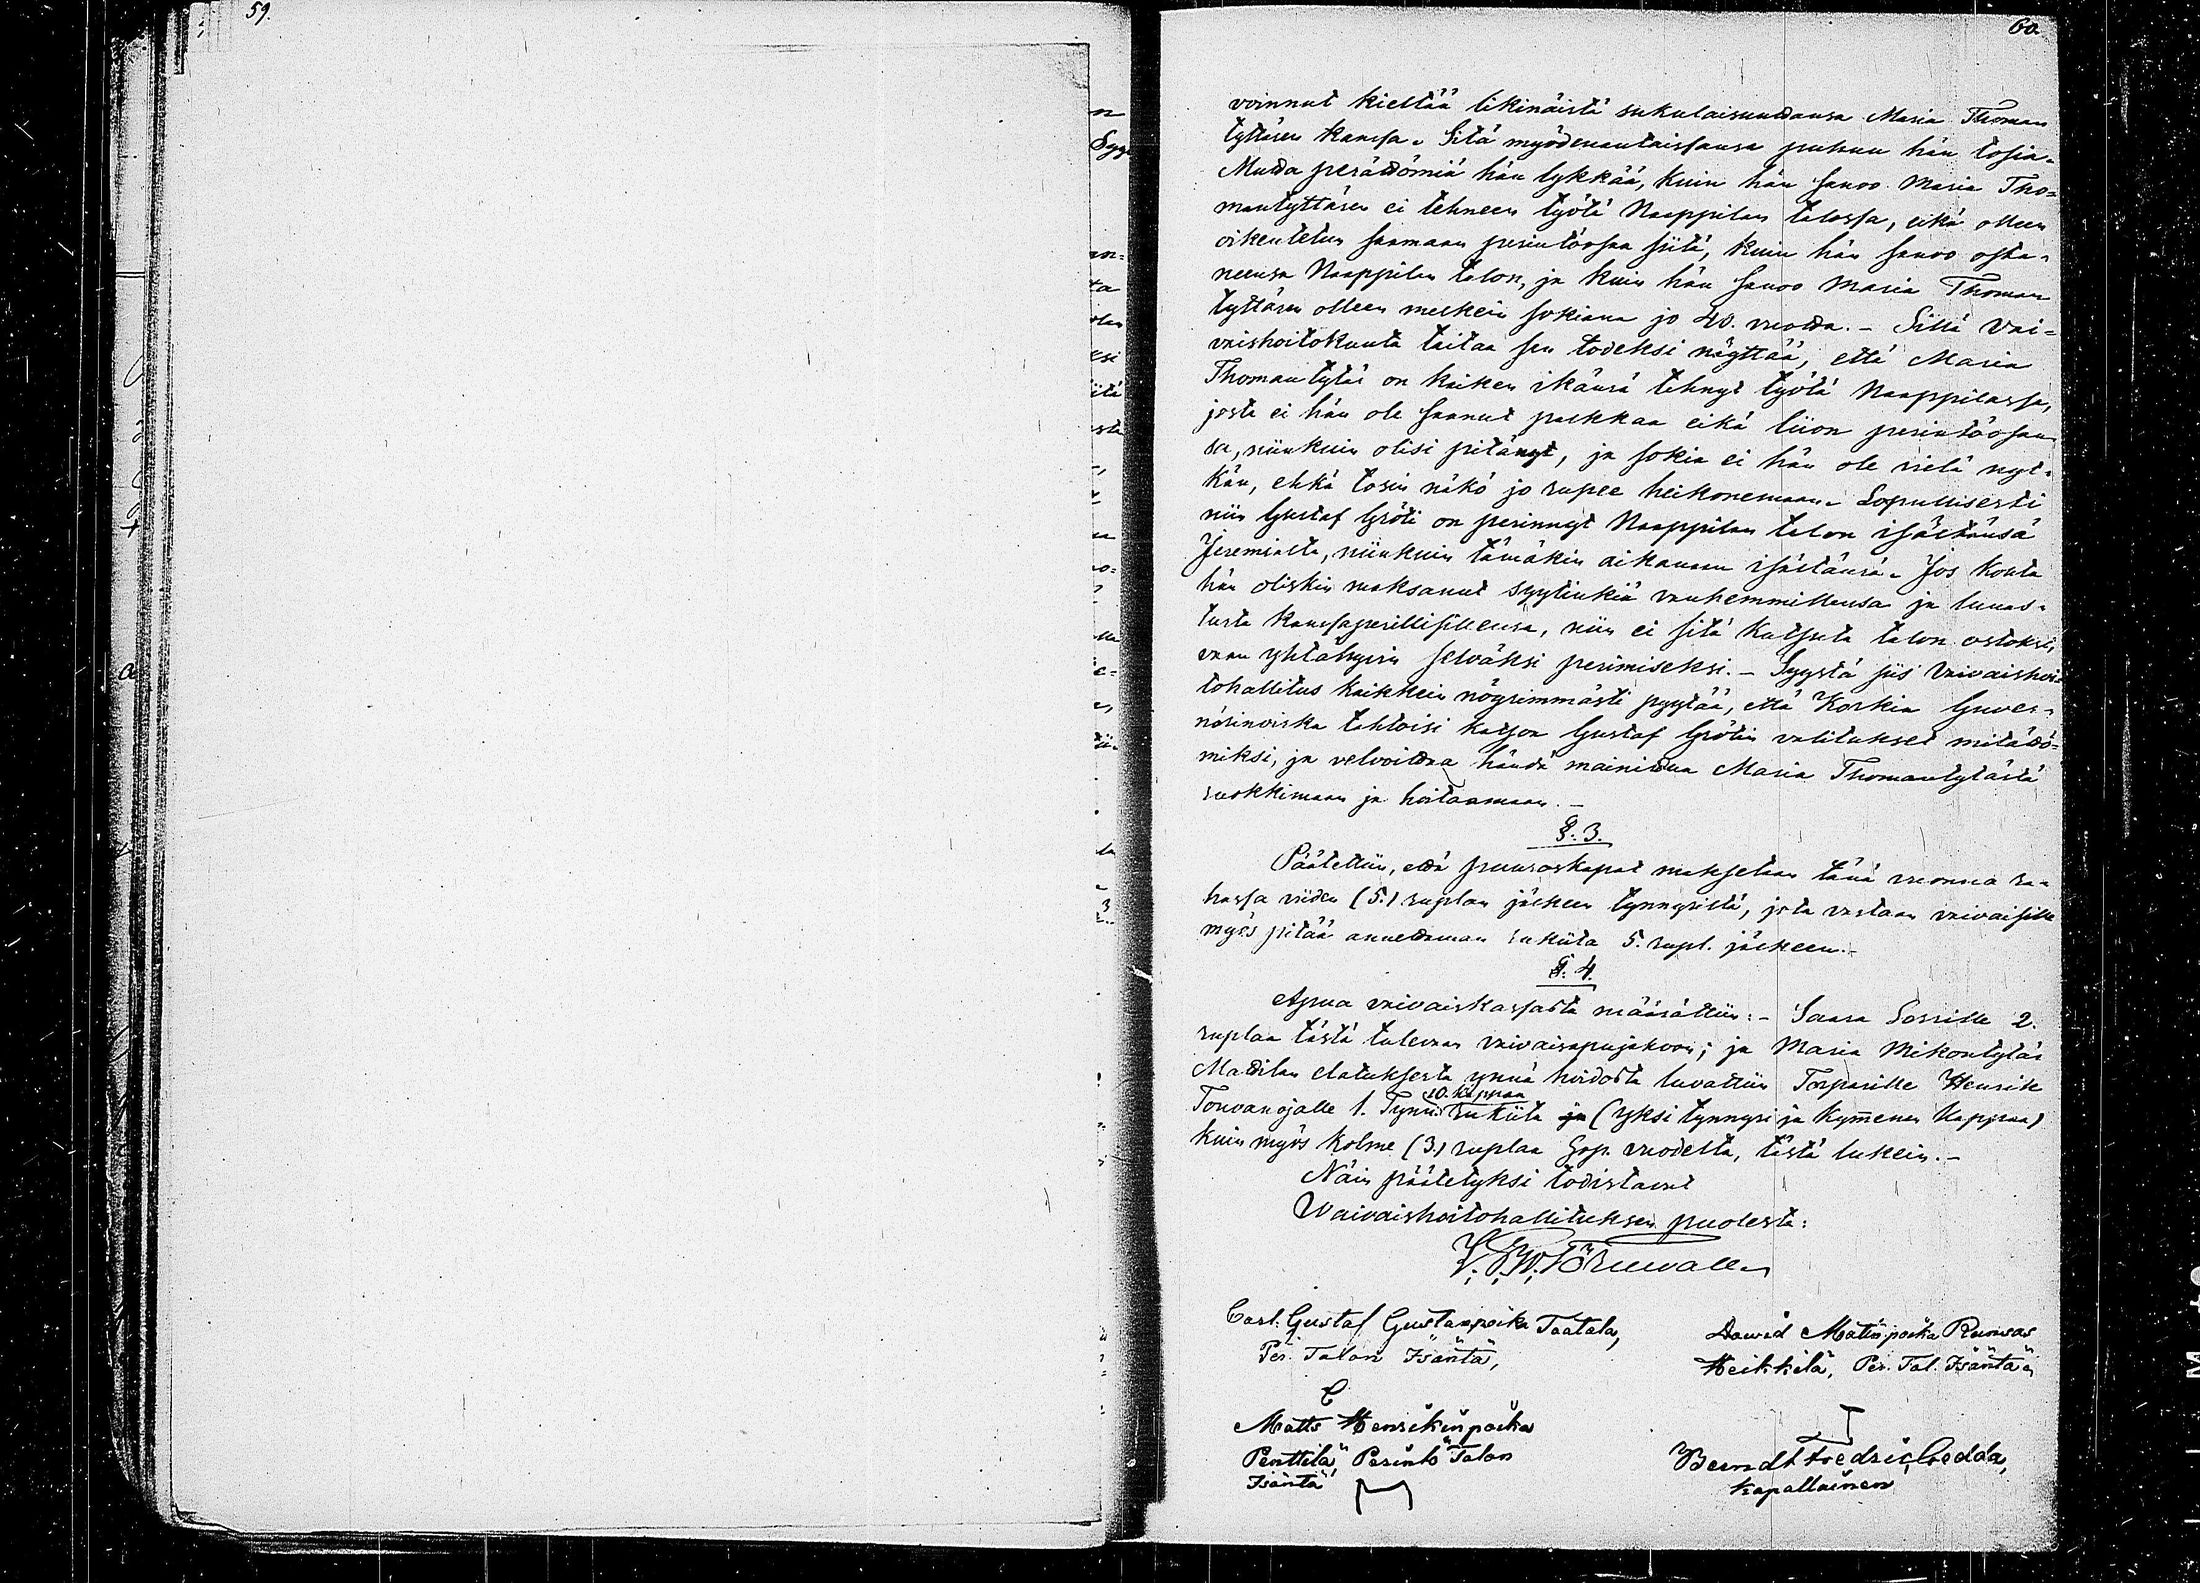 59.
60.
voinnut kieltää likinäistä sukulaisuuttansa Maria Thoman
tyttären kanssa. Sitä myödenantaissansa puhuu hän tosia.
Mutta perättömiä hän lykkää, kuin hän sanoo Maria Tho=
mantyttären ei tehneen työtä Naappilan talossa, eikä olleen
oikeutetun saamaan perintöosaa siitä, kuin hän sanoo osta-
neensa Naappilan talon, ja kuin hän sanoo Maria Thoman
tyttären olleen melkein sokiana jo 40. vuotta. - Sillä Vai=
vaishoitokunta taitaa sen todeksi näyttää, että Maria
Thomantytär on kaiken ikänsä tehnyt työtä Naappilassa,
josta ei hän ole saanut palkkaa eikä liion perintöosaan
sa, niinkuin olisi pitänyt, ja sokia ei hän ole vielä nyt-
kän, ehkä tosin näkö jo rupee heikonemaan. Lopullisesti
niin Gustaf Gröti on perinnyt Naappilan talon isältänsä
Jeremialta, niinkuin tämäkin aikanaan isältänsä. Jos kohta
hän oliskin maksanut syytinkiä vanhemmillensa ja lunas-
tusta kanssaperillisillensa, niin ei sitä katsota talon ostoksi,
vaan yhtähyvin selväksi perimiseksi. - Syystä siis Vaivaishoi=
tohallitus kaikkein nöyrimmästi pyytää, että Korkia Guver-
nörinvirka tahtoisi katsoa Gustaf Grötin valitukset mitättö=
miksi, ja velvoittaa händä mainittua Maria Thomantytärtä
ruokkimaan ja hoitaamaan. -
§. 3.
Päätettiin, että puuroskapat maksetaan tänä vuonna ra-
hassa viiden (5.) ruplan jälkeen tynnyristä, jota vastaan vaivaisille
myös pitää annettaman rukiita 5. rupl. jälkeen. -
§. 4.
Apua vaivaiskassasta määrättiin: - Saara Sorrille 2.
ruplaa tästä tulevaan vaivaisapujakoon; ja Maria Mikontytär
Mattilan elatuksesta ynnä hoidosta luvattiin Torparille Henrik
10. kappaa
Torvanojalle 1. Tynn. rukiita ja (yksi tynnyri ja kymenen kappaa)
kuin myös kolme (3.) ruplaa Hop. vuodelta, tästä lukein. -
Näin päätetyksi todistavat
Waivaishoitohallituksen puolesta:
Carl Gustaf Gustanpoika Taatala,
Per. Talon Isäntä,
Dawid Matinpoika Runsas
Heikkilä, Per. Tal. Isäntä
Matts Henrikinpoika
Penttilä Perintö Talon
Isäntä
Berndt Fredric Gedda,
kapallainen